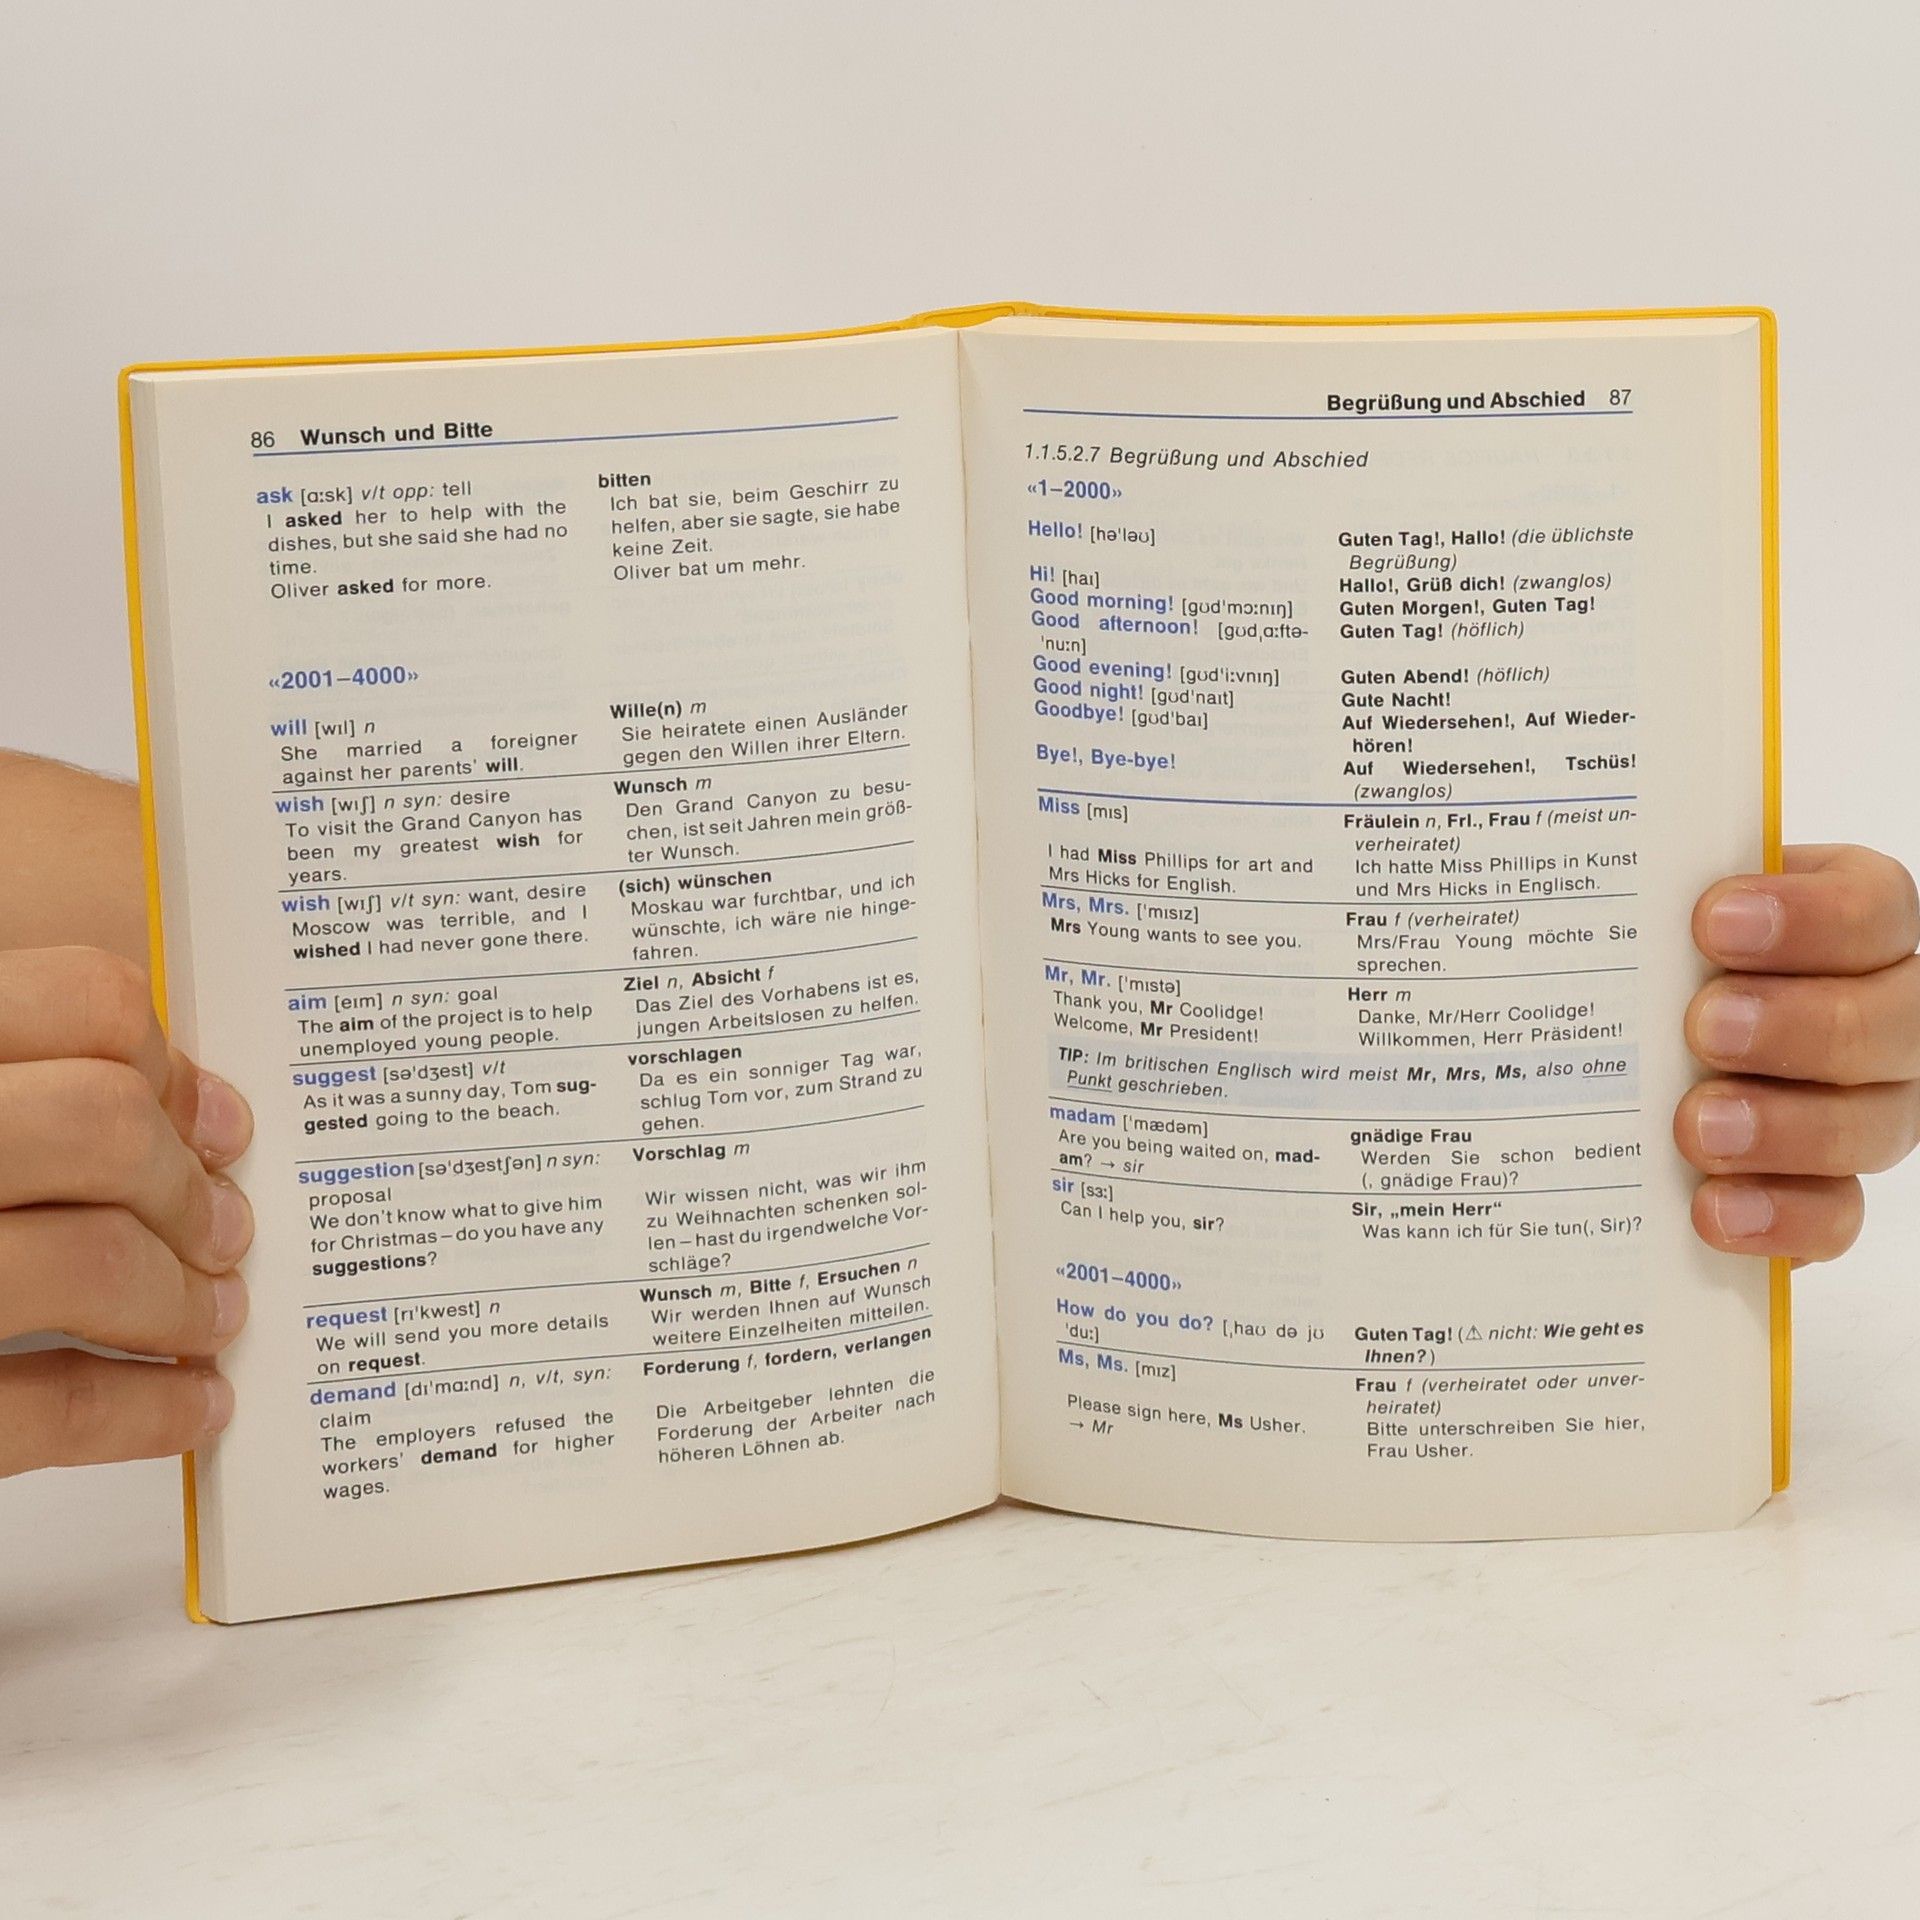 86 Wunsch und Bitte
ask [ɑːsk] v/t opp: tell
I asked her to help with the
dishes, but she said she had no
time.
Oliver asked for more.
bitten
Ich bat sie, beim Geschirr zu
helfen, aber sie sagte, sie habe
keine Zeit.
Oliver bat um mehr.
«2001–4000»
will [wɪl] n
She married a foreigner
against her parents' will.
Wille(n) m
Sie heiratete einen Ausländer
gegen den Willen ihrer Eltern.
wish [wɪʃ] n syn: desire
To visit the Grand Canyon has
been my greatest wish for
years.
Wunsch m
Den Grand Canyon zu besu-
chen, ist seit Jahren mein größ-
ter Wunsch.
wish [wɪʃ] v/t syn: want, desire
Moscow was terrible, and I
wished I had never gone there.
(sich) wünschen
Moskau war furchtbar, und ich
wünschte, ich wäre nie hinge-
fahren.
aim [eɪm] n syn: goal
The aim of the project is to help
unemployed young people.
Ziel n, Absicht f
Das Ziel des Vorhabens ist es,
jungen Arbeitslosen zu helfen.
suggest [səˈdʒest] v/t
As it was a sunny day, Tom sug-
gested going to the beach.
vorschlagen
Da es ein sonniger Tag war,
schlug Tom vor, zum Strand zu
gehen.
suggestion [səˈdʒestʃən] n syn:
proposal
We don't know what to give him
for Christmas – do you have any
suggestions?
Vorschlag m
Wir wissen nicht, was wir ihm
zu Weihnachten schenken sol-
len – hast du irgendwelche Vor-
schläge?
request [rɪˈkwest] n
We will send you more details
on request.
Wunsch m, Bitte f, Ersuchen n
Wir werden Ihnen auf Wunsch
weitere Einzelheiten mitteilen.
demand [dɪˈmɑːnd] n, v/t, syn:
claim
The employers refused the
workers' demand for higher
wages.
Forderung f, fordern, verlangen
Die Arbeitgeber lehnten die
Forderung der Arbeiter nach
höheren Löhnen ab.
Begrüßung und Abschied 87
1.1.5.2.7 Begrüßung und Abschied
«1–2000»
Hello! [həˈləʊ]
Guten Tag!, Hallo! (die üblichste
Begrüßung)
Hi! [haɪ]
Hallo!, Grüß dich! (zwanglos)
Good morning! [gʊdˈmɔːnɪŋ]
Guten Morgen!, Guten Tag!
Good afternoon! [gʊdˌɑːftə-
ˈnuːn]
Guten Tag! (höflich)
Good evening! [gʊdˈiːvnɪŋ]
Guten Abend! (höflich)
Good night! [gʊdˈnaɪt]
Gute Nacht!
Goodbye! [gʊdˈbaɪ]
Auf Wiedersehen!, Auf Wieder-
hören!
Bye!, Bye-bye!
Auf Wiedersehen!, Tschüs!
(zwanglos)
Miss [mɪs]
I had Miss Phillips for art and
Mrs Hicks for English.
Fräulein n, Frl., Frau f (meist un-
verheiratet)
Ich hatte Miss Phillips in Kunst
und Mrs Hicks in Englisch.
Mrs, Mrs. [ˈmɪsɪz]
Mrs Young wants to see you.
Frau f (verheiratet)
Mrs/Frau Young möchte Sie
sprechen.
Mr, Mr. [ˈmɪstə]
Thank you, Mr Coolidge!
Welcome, Mr President!
Herr m
Danke, Mr/Herr Coolidge!
Willkommen, Herr Präsident!
TIP: Im britischen Englisch wird meist Mr, Mrs, Ms, also ohne
Punkt geschrieben.
madam [ˈmædəm]
Are you being waited on, mad-
am? → sir
gnädige Frau
Werden Sie schon bedient
(, gnädige Frau)?
sir [sɜː]
Can I help you, sir?
Sir, „mein Herr“
Was kann ich für Sie tun(, Sir)?
«2001–4000»
How do you do? [ˌhaʊ də jʊ
ˈduː]
Guten Tag! (⚠ nicht: Wie geht es
Ihnen?)
Ms, Ms. [mɪz]
Please sign here, Ms Usher.
→ Mr
Frau f (verheiratet oder unver-
heiratet)
Bitte unterschreiben Sie hier,
Frau Usher.